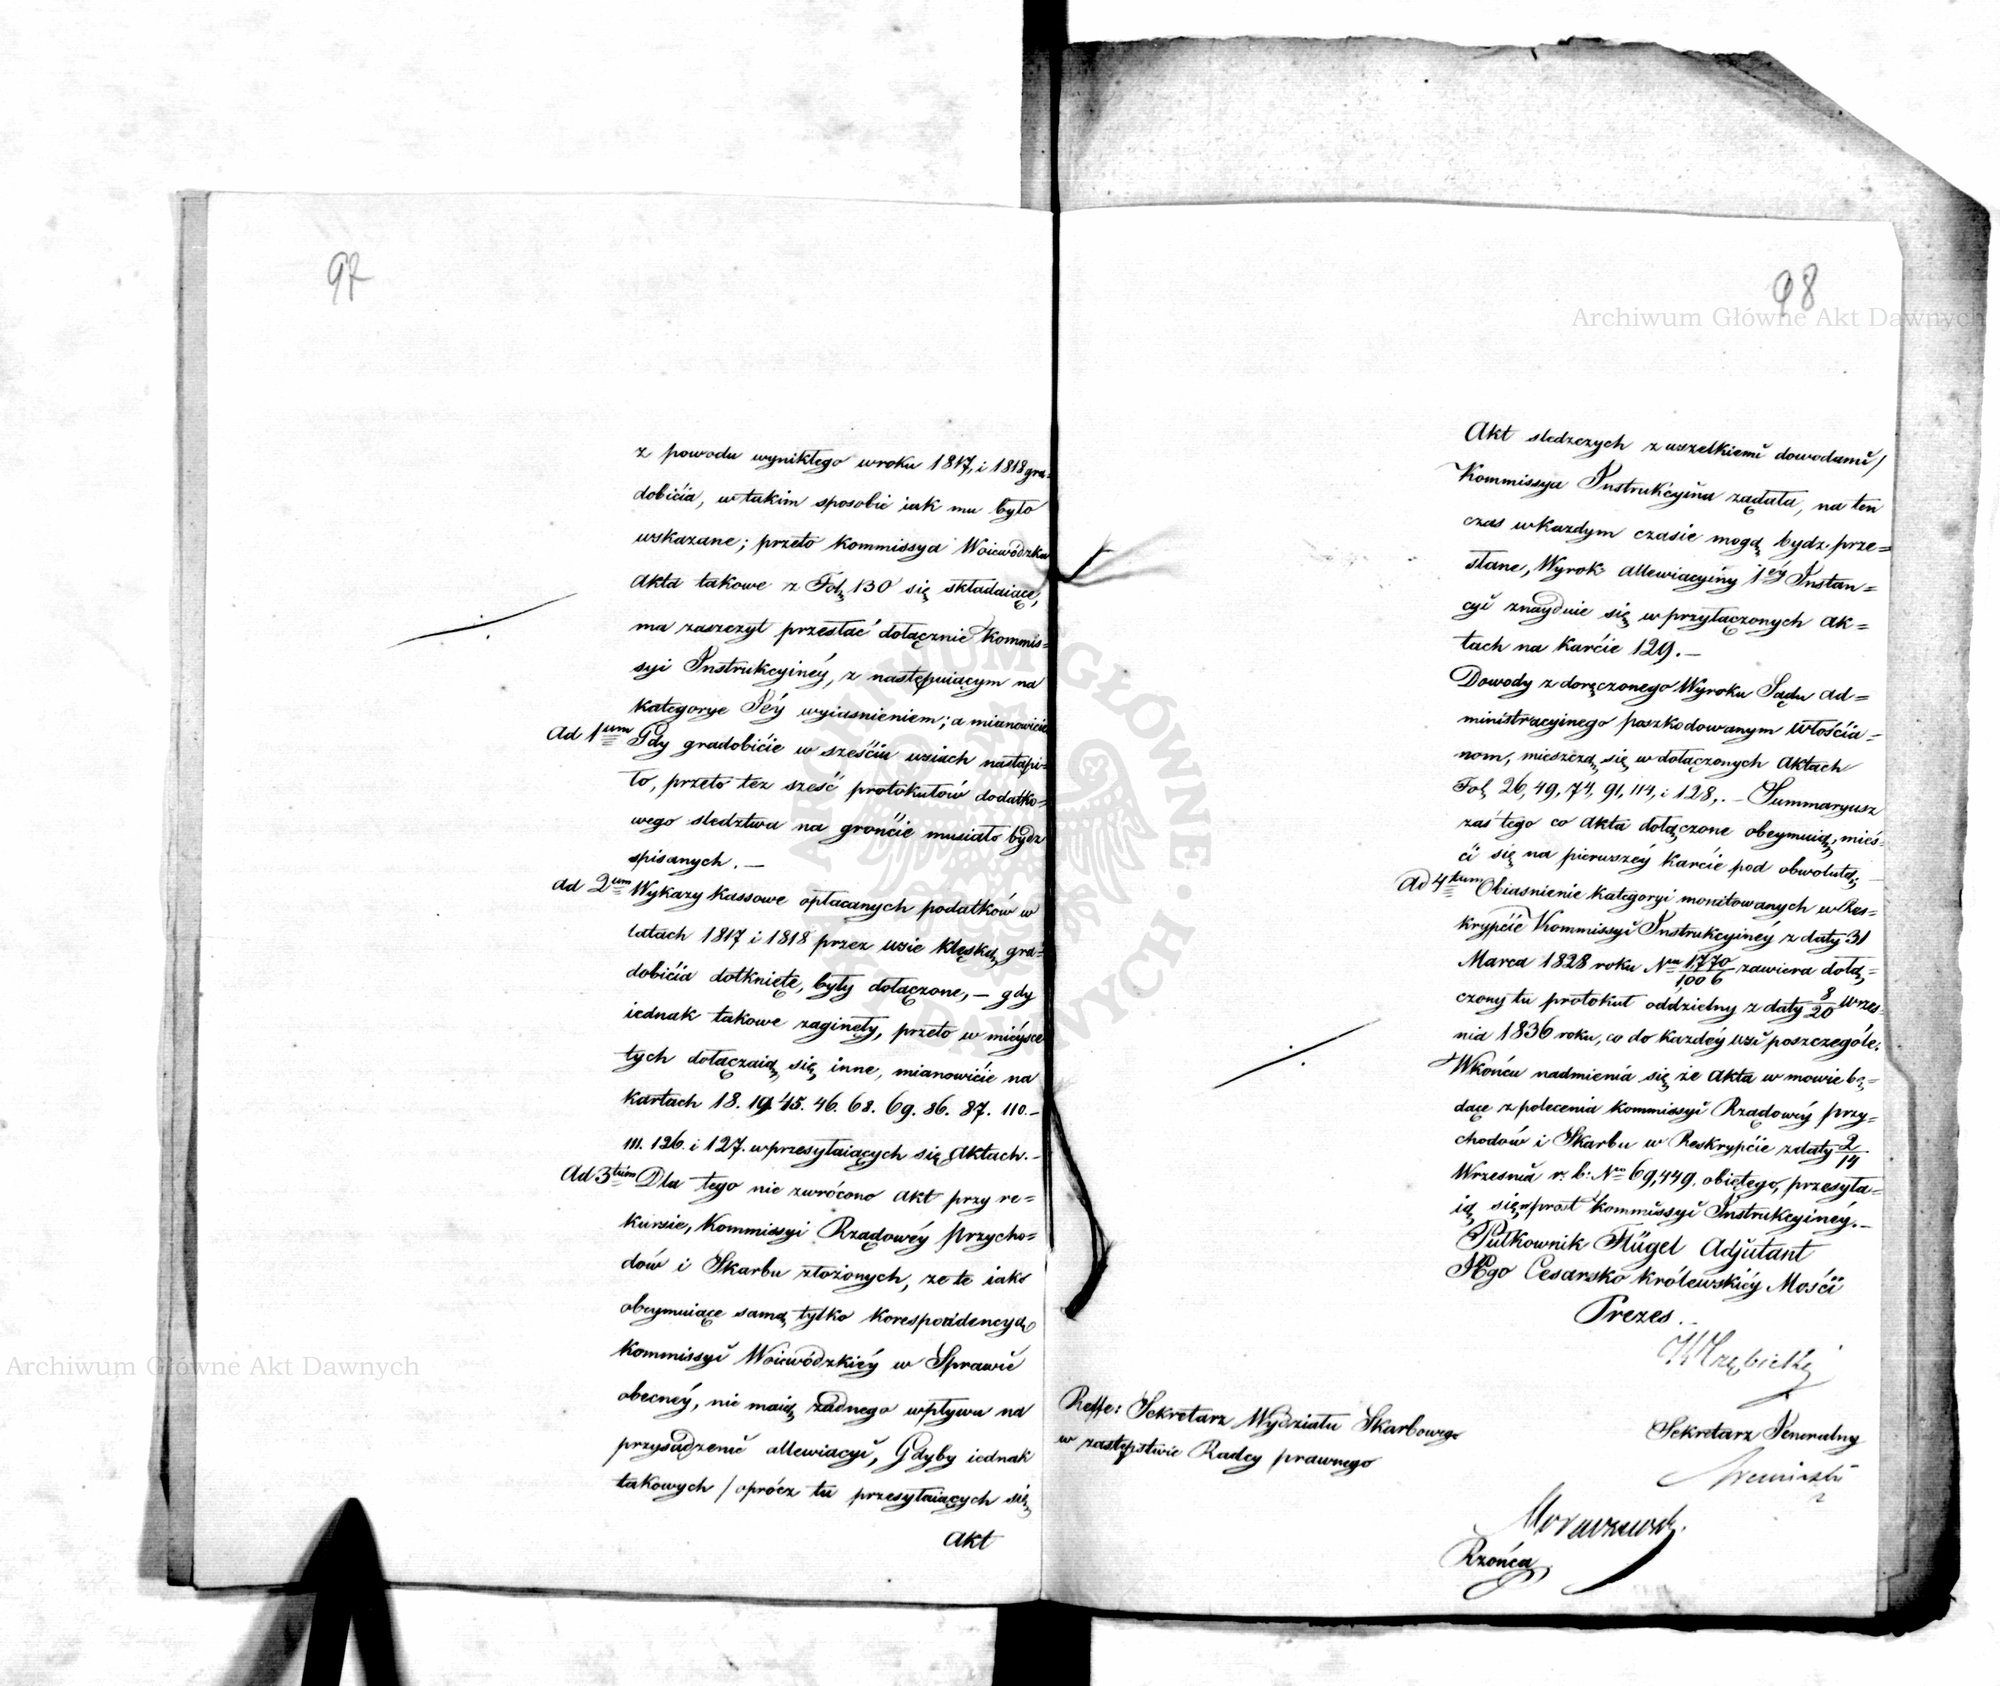 97
z powodu wynikłego w roku 1817, i 1818 gra-
dobićia, w takim sposobie iak mu było
wskazane; przeto Kommissya Woiewódzka
Akta takowe z Fol. 130 się składaiące,
ma zaszczyt przesłać dołącznie Kommis=
syi Instrukcyinéy, z następuiącym na
kategorye Iéy wyiasnieniem; a mianowicie
Ad 1um Gdy gradobićie w sześćiu wsiach nastąpi=
ło, przeto tez sześć protokułów dodatko=
wego sledztwa na grońćie musiało bydz
spisanych. —
Ad 2um Wykazy kassowe opłacanych podatków w
latach 1817 i 1818 przez wsie klęską gra=
dobićia dotknięte, były dołączone, — gdy
iednak takowe zaginęły, przeto w miéysce
tych dołączaią się inne, mianowićie na
kartach 18. 19. 45. 46. 68. 69. 86. 87. 110.-
111. 126. i 127. w przesyłaiących się Aktach. -
Ad 3tium Dla tego nie zwrócono Akt przy re=
kursie, Kommissyi Rządowéy Przycho=
dów i Skarbu złożonych, ze te iako
obeymuiące samą tylko korespondencyą
Kommissyi Woiewódzkiéy w Sprawie
obecnéy, nie maią żadnego wpływu na
przysądzenie allewiacyi, Gdyby iednak
takowych / oprócz tu przesyłaiących się
Akt
98
Akt sledzczych z wszelkiemi dowodami /
Kommissya Instrukcyina ządała, na ten
czas w kazdym czasie mogą bydz prze=
słane, Wyrok allewiacyiny 1éy Instan=
cyi znayduie się w przyłączonych Ak=
tach na karćie 129. —
Dowody z doręczonego Wyroku Sądu Ad=
ministracyinego poszkodowanym Włośćia=
nom, mieszczą się w dołączonych Aktach
Fol. 26, 49, 74, 91, 114, i 128,. — Summaryusz
zaś tego co Akta dołączone obeymuią, mieś-
ći się na pierwszéy karćie pod obwolutą;
Ad 4tum Obiasnienie kategoryi monitowanych w Res=
krypćie Kommissyi Instrukcyinéy z daty 31
Marca 1828 roku Nro 1770/1006 zawiera dołą=
czony tu protokuł oddzielny z daty 8/20 Wrzes-
nia 1836 roku, co do kazdéy wsi poszczególe.
W końcu nadmienia się że Akta w mowie bę=
dące z polecenia Kommissyi Rządowéy Przy=
chodów i Skarbu w Reskrypćie z daty 2/14
Wrzesnia r. b. Nro 69,449. obiętego, przesyła=
ią się wprost Kommissyi Instrukcyinéy. —
Pułkownik Flügel Adjutant
Jego Cesarsko Królewskiéy Mośći
Prezes.
Reffe: Sekretarz Wydziału Skarbowego
w zastępstwie Radcy prawnego
Sekretarz Jeneralny
Rzońca
Archiwum Główne Akt Dawnych
Archiwum Główne Akt Dawnych
ARCHIWUM GŁÓWNE AKT DAWNYCH